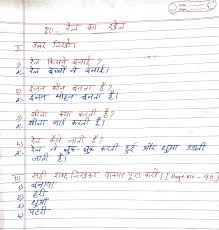 20. रेल का खेल
I उत्तर लिखो।
1) रेल किसने बनाई?
A- रेल बच्चों ने बनाई।
2) इंजन कौन बनता है?
A- इंजन मोहन बनता है।
3) शीला क्या करती है?
A- शीला गार्ड बनती है।
4) रेल कैसे जाती है?
A- रेल तो छुक छुक करती हुई और धुआँ उड़ाती
जाती है।
III सही शब्द लिखकर वाक्य पूरा करो। (Page no - 90)
1) बनाया
2) हरी
3) धुआँ
4) पटरी